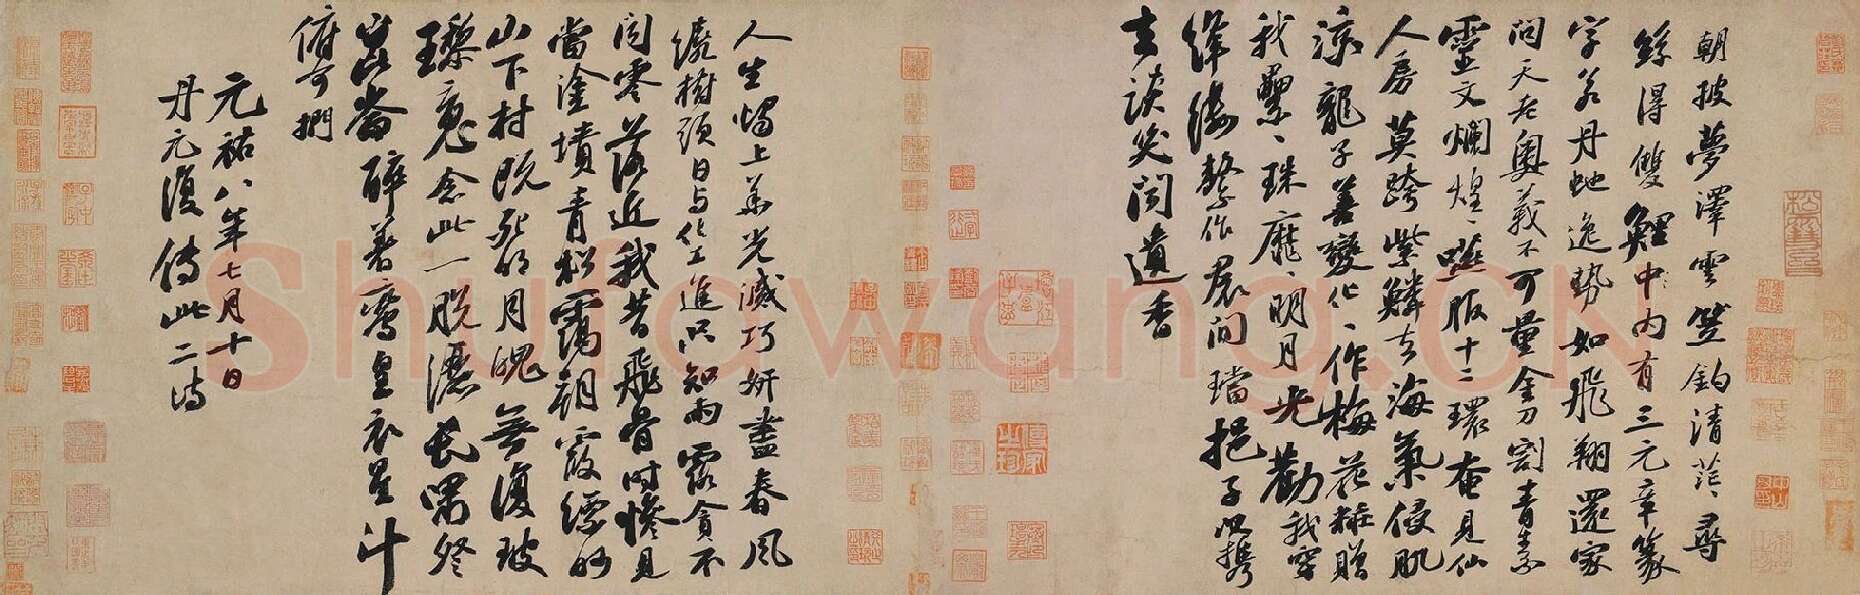 朝披夢澤雲笠釣清茫〻尋
絲得雙鯉中内有三元章篆
字若丹虵逸勢如飛翔還家
問天老奥義不可量金刀割青素
靈文爛煌〻嚥服十二環奄見仙
人房莫跨紫鱗去海氣侵肌
涼龍子善變化〻作梅花粧贈
我纍〻珠靡〻明月光勸我穿
絳縷繫作裙間璫挹子以攜
去談笑聞遺香
人生燭上華光滅巧妍盡春風
繞樹頭日與化工進只知雨露貪不
聞零落近我昔飛骨時慘見
當塗墳青松靄朝霞縹眇
山下村既死明月魄無復玻
瓈魂念此一脱灑長嘯祭
崑崙醉著鸞皇衣星斗
俯可捫
元祐八年七月十日
丹元復傳此二詩
Shufawang.CN